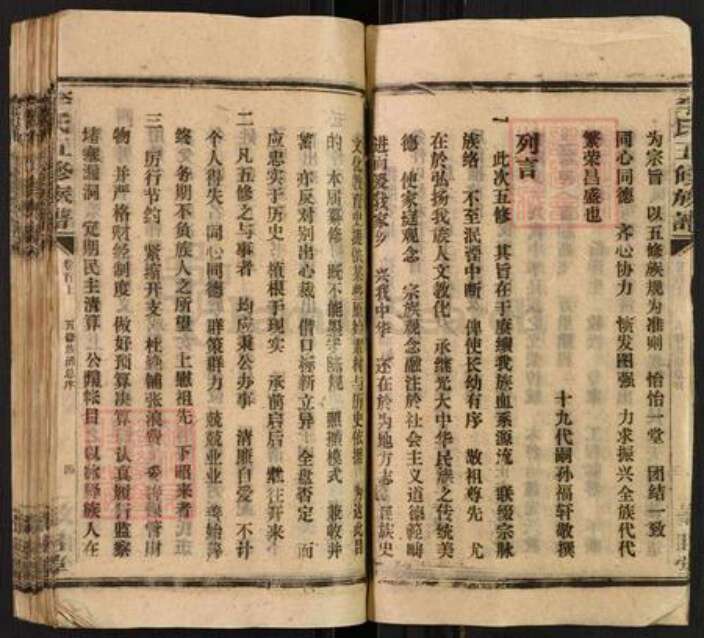 为宗旨　以五修族规为准则　怡怡一堂　团结一致
同心同德　齐心协力　愤发图强　力求振兴全族代代
繁荣昌盛也
十九代嗣孙福轩敬撰
列言
一　此次五修　其旨在于赓续我族血系源流　联缀宗脉
族络　不至泯湮中断　俾使长幼有序　敬祖尊先　尤
在於弘扬我族人文教化　承继光大中华民族之传统美
德　使家庭观念　宗族观念融注於社会主义道德范畴
进而爱我家乡　兴我中华　还在於为地方志　民族史
文化教育史提供某些原始素材与历史依据　为达此目
的　本届纂修　既不能墨守陈规　照搬模式　兼收并
蓄　亦反对别出心裁　借口标新立异　全盘否定　而
应忠实于历史　植根于现实　承前启后　继往开来
二　凡五修之与事者　均应秉公办事　清廉自爱　不计
个人得失　同心同德　群策群力　兢兢业业　善始善
终　务期不负族人之所望　上慰祖先　下昭来者
三　厉行节约　紧缩开支　杜绝铺张浪费　管财
物　并严格财经制度　做好预算决算　认真履行监察
堵塞漏洞　定期民主清算　公布帐目　以冰释族人在
李氏五修族谱
卷首上
五修族谱总序
四